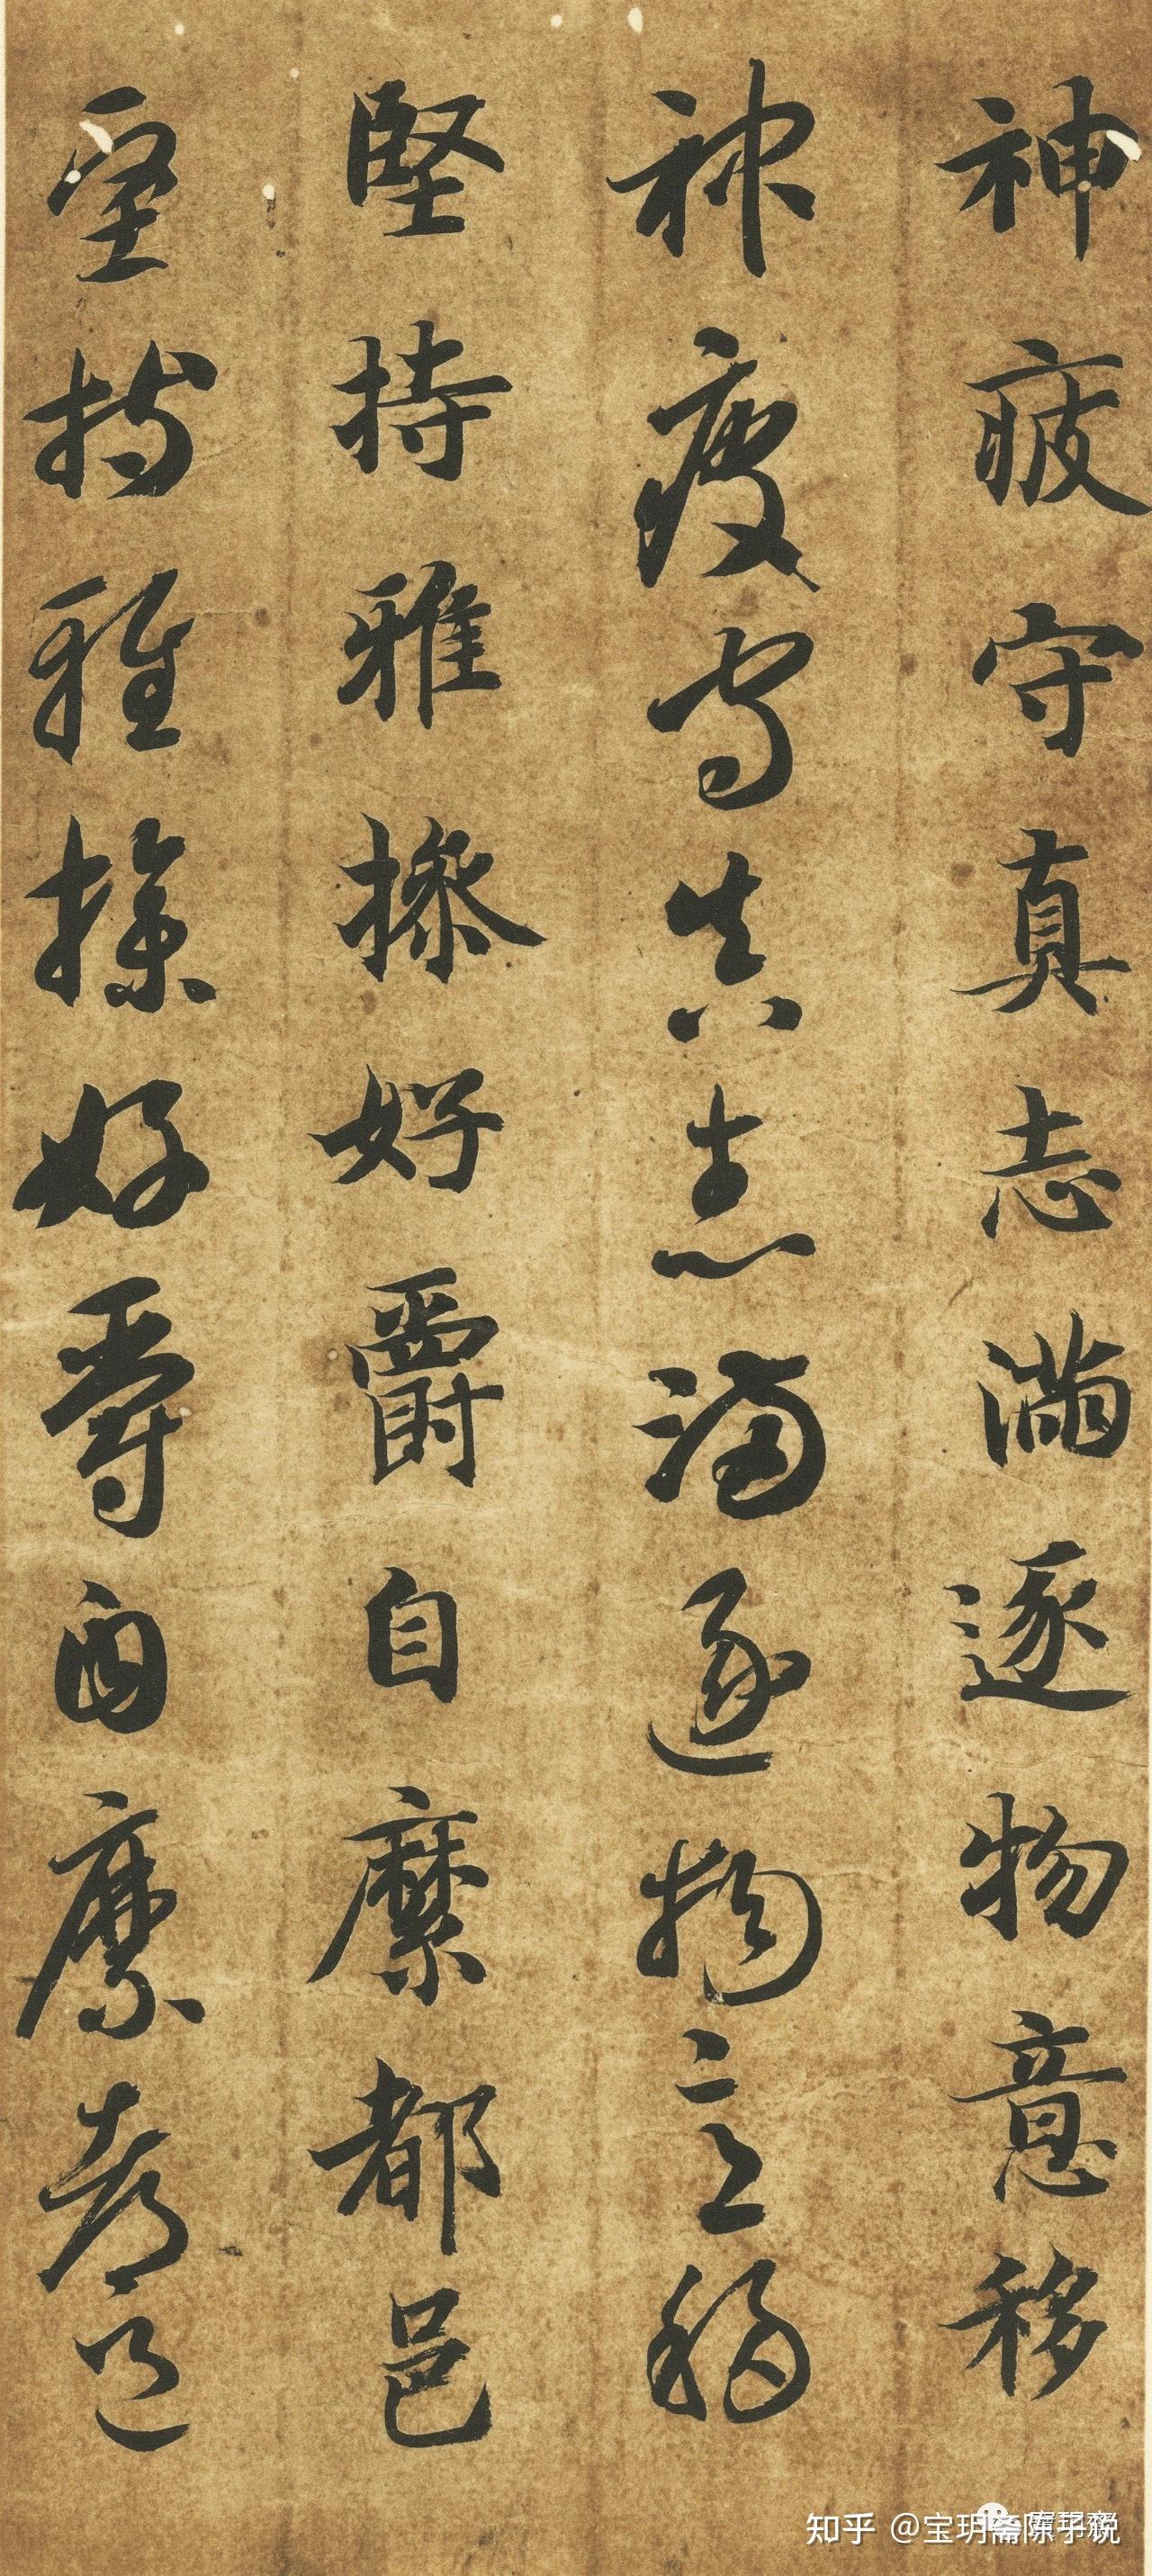 神疲守真志满逐物意移
神疲守真志满逐物意移
坚持雅操好爵自縻都邑
坚持雅操好爵自縻都邑
知乎 @宝玥斋陈子锐